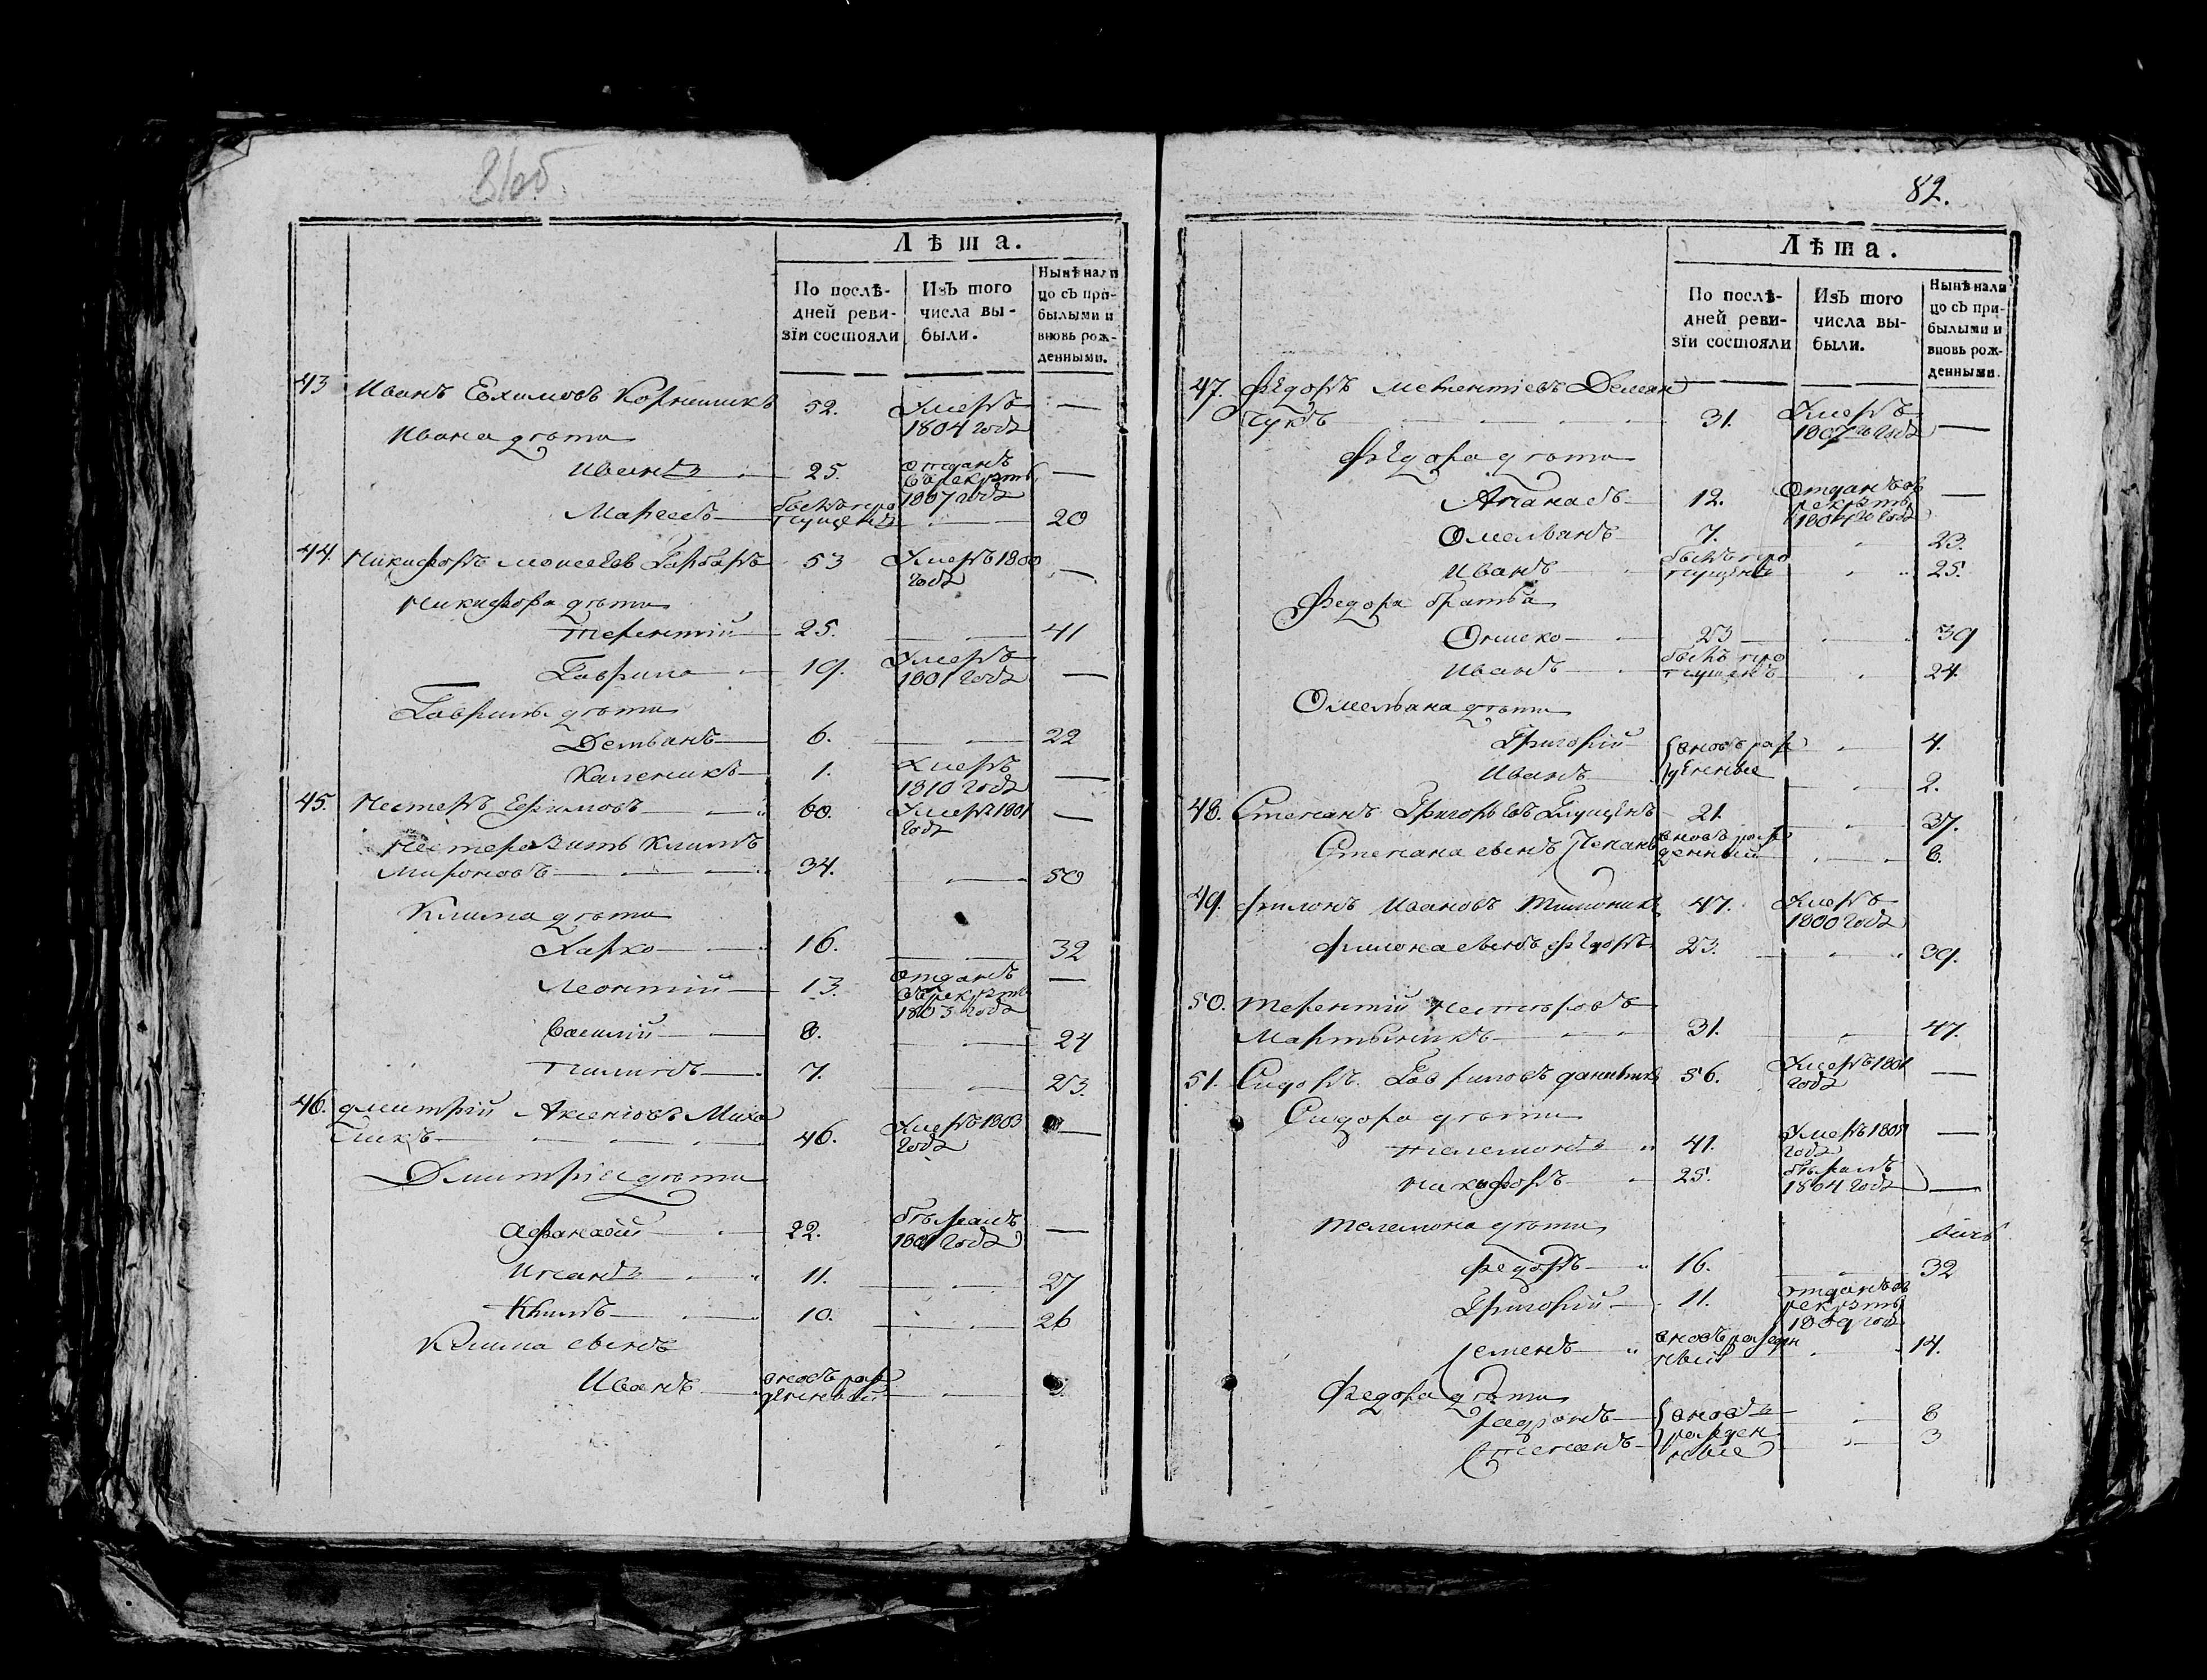 81об.
Лѣта.
По послѣ-
дней реви-
зіи состояли
Изъ того
числа вы-
были.
Нынѣ нали
цо съ при-
былыми и
вновь рож-
денными.
43 Иванъ Евхимовъ Корнийчикъ 52. Умеръ —
1804 года
Ивана дѣти
Иванъ 25. отданъ —
въ рекруты
1807 года
Мареель былъ про 20
пущенъ
44. Никифоръ моисеевъ Гарбаръ 53 Умеръ 1800 —
года
Никифора дѣти
терентий 25. 41
Гаврило 19. Умеръ —
1801 года
Гаврила дѣти
Демьянъ 6. 22
Каленикъ 1. Умеръ —
1810 года
45. Нестеръ Ефимовъ 60. Умеръ 1801 —
года
Нестера зять Климъ
Мироновъ 34. 50
Клима дѣти
Харко 16. 32
Леонтий 13. отданъ —
въ рекруты
1803 года
Василий 8. 24
Пилипъ 7. 23.
46. дмитрий Аксентовъ Миха
46. Умеръ 1803 —
года
Дмитрия дѣти
Афанасий 22. бѣжалъ —
1801 года
Игнатъ 11. 27
Климъ 10. 26
Клима сынъ
Иванъ вновь раж
денный
82.
Лѣта.
По послѣ-
дней реви-
зіи состояли
Изъ того
числа вы-
были.
Нынѣ нали
цо съ при-
былыми и
вновь рож-
денными.
47. Федоръ мекентіевъ Демян
чукъ 31. Умеръ —
1807 го года
Федора дѣти
Апанасъ 12. Отданъ въ —
рекруты
1804 го года
Омельянъ 7. 23.
Иванъ былъ про 25.
пущенъ
Федора братья
23 39
Иванъ былъ про 24.
пущенъ
Омельяна дѣти
Григорий вновь раж 4.
Иванъ денные 2.
48. Степанъ Григорьевъ Глущукъ 21. 37.
Степана сынъ вновь раж 6.
денный
49. Филонъ Ивановъ 47. Умеръ
1800 года
Филона сынъ Федоръ 23. 39.
50. терентий Нестеровъ
Мартыникъ 31. 47.
51. Сидоръ Гавриловъ 56. Умеръ 1801 —
года
Сидора дѣти
Пелемонъ 41. Умеръ 1801 —
года
Никифоръ 25. бѣжалъ
1804 года —
Пелемона дѣти
Федоръ 16. 32
Григорий 11. отданъ въ
рекруты
1809 года
Семенъ вновь ражден 14.
ный
Федора дѣти
вновь 8
Степанъ ражден 3
ные